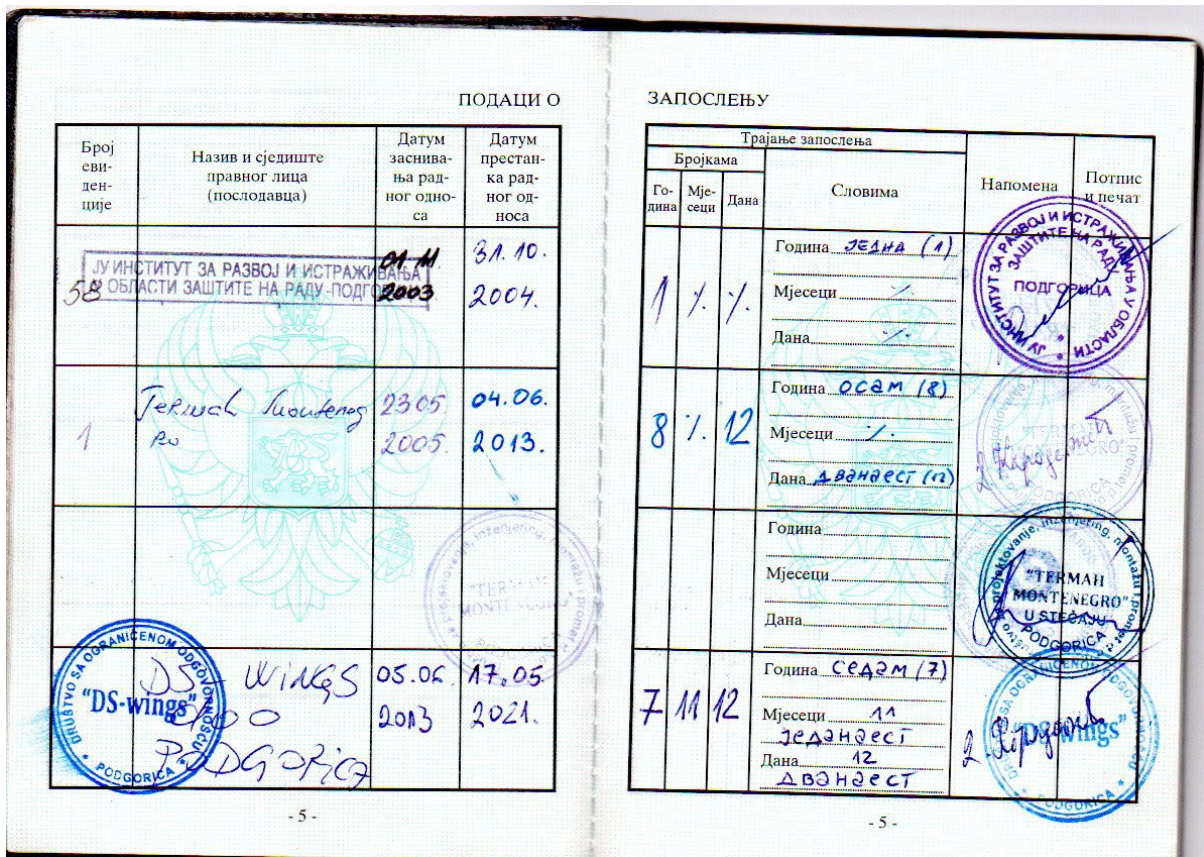 ПОДАЦИ О
Број
еви-
ден-
ције
Назив и сједиште
правног лица
(послодавца)
Датум
заснива-
ња рад-
ног одно-
са
Датум
престан-
ка рад-
ног од-
носа
58
ЈУ ИНСТИТУТ ЗА РАЗВОЈ И ИСТРАЖИВАЊА
У ОБЛАСТИ ЗАШТИТЕ НА РАДУ-ПОДГО
01.11
2003
31.10.
2004.
1
Termah Monteneg
ro
23 05.
2005.
04.06.
2013.
"TERMAH
MONTENEGRO"
PODGORICA
DRUŠTVO SA OGRANIČENOM ODGOVORNOŠĆU
"DS-wings"
PODGORICA
DS-WINGS
DOO
PODGORICA
05.06.
2013
17.05.
2021.
- 5 -
ЗАПОСЛЕЊУ
Трајање запослења
Бројкама
Го-
дина
Мје-
сеци
Дана
Словима
Напомена
Потпис
и печат
1 /. /.
Година ЈЕДНА (1)
Мјесеци /.
Дана /.
ЈУ ИНСТИТУТ ЗА РАЗВОЈ И ИСТРАЖИВАЊА У ОБЛАСТИ
ЗАШТИТЕ НА РАДУ
ПОДГОРИЦА
8 /. 12
Година осам (8)
Мјесеци /.
Дана дванаест (12)
"TERMAH
MONTENEGRO"
PODGORICA
Година
Мјесеци
Дана
projektovanje, inženjering, montažu i promet
"TERMAH
MONTENEGRO"
U STEČAJU
PODGORICA
7 11 12
Година седам (7)
Мјесеци 11
једанаест
Дана 12
дванаест
DRUŠTVO SA OGRANIČENOM ODGOVORNOŠĆU
"DS-wings"
PODGORICA
- 5 -